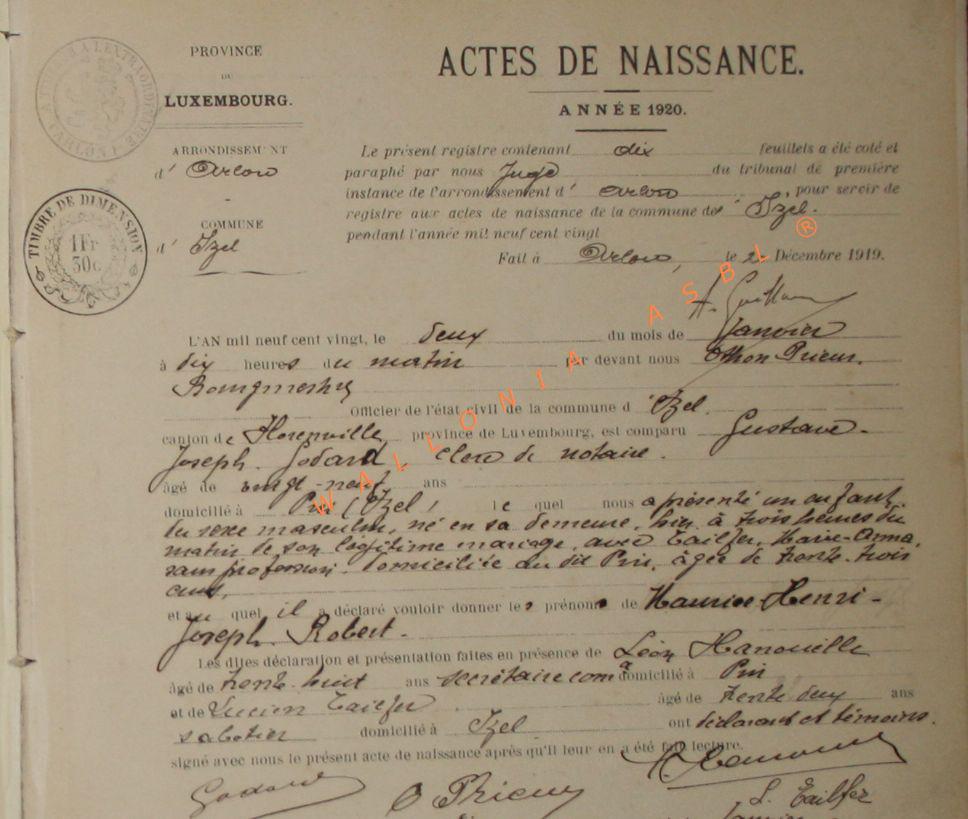 PROVINCE
DU
LUXEMBOURG.
ARRONDISSEMENT
d' Arlon
COMMUNE
d' Izel
TIMBRE DE DIMENSION
1Fr
30c
ACTES DE NAISSANCE.
ANNÉE 1920.
Le présent registre contenant dix feuillets a été coté et
paraphé par nous Juge du tribunal de première
instance de l'arrondissement d' Arlon, pour servir de
registre aux actes de naissance de la commune d' Izel.
pendant l'année mil neuf cent vingt
Fait à Arlon, le 2 Décembre 1919.
WALLONIA ASBL ®
L'AN mil neuf cent vingt, le deux du mois de Janvier
à dix heures du matin par devant nous Othon Prieur,
Bourgmestre
Officier de l'état civil de la commune d' Izel.
canton de Florenville, province de Luxembourg, est comparu Gustave-
Joseph. Godard, clerc de notaire.
âgé de vingt-neuf ans
domicilié à Pin (Izel) lequel nous a présenté un enfant
du sexe masculin, né en sa demeure, hier à trois heures du
matin de son légitime mariage avec Tailfer, Marie-Anna,
sans profession domiciliée au dit Pin, âgée de trente-trois
ans,
et au quel il a déclaré vouloir donner les prénoms de Maurice-Henri-
Joseph Robert.
Les dites déclaration et présentation faites en présence de Léon Hanouille
âgé de trente huit ans secrétaire comal domicilié à Pin
et de Lucien Tailfer âgé de trente deux ans
sabotier domicilié à Izel ont déclarant et témoins.
signé avec nous le présent acte de naissance après qu'il leur en a été fait lecture.
Godard O Prieur L. Tailfer